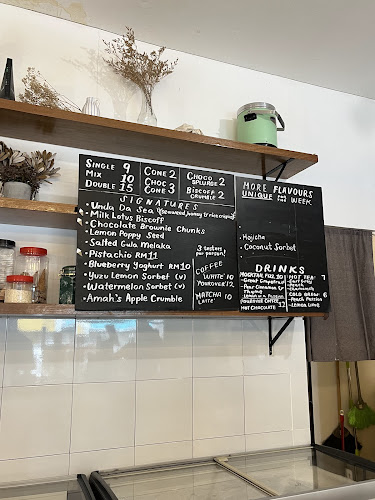 SINGLE 9
MIX 10
DOUBLE 15
CONE 2
CHOC CONE 3
CHOCO SPLURGE 2
BISCOFF CRUMBLE 2
SIGNATURES
- Unda Da Sea (Seaweed, honey & rice crispies)
- Milk Lotus Biscoff
- Chocolate Brownie Chunks
- Lemon Poppy Seed
- Salted Gula Melaka
- Pistachio RM11
- Blueberry Yoghurt RM10
- Yuzu Lemon Sorbet (v)
- Watermelon Sorbet (v)
- Amah's Apple Crumble
3 testers per person!
COFFEE
WHITE 10
POUROVER 12
MATCHA LATTE 10
MORE FLAVOURS
UNIQUE FOR THE WEEK
- Mojicha
- Coconut Sorbet
DRINKS
MOCKTAIL FIZZ 10
- Great Grapefruit
- Pear Cinnamon & Thyme
POUROVER COFFEE 12
HOT CHOCOLATE 11
HOT TEA 7
COLD BREW 8
- Peach Passion
- Lemon Lime